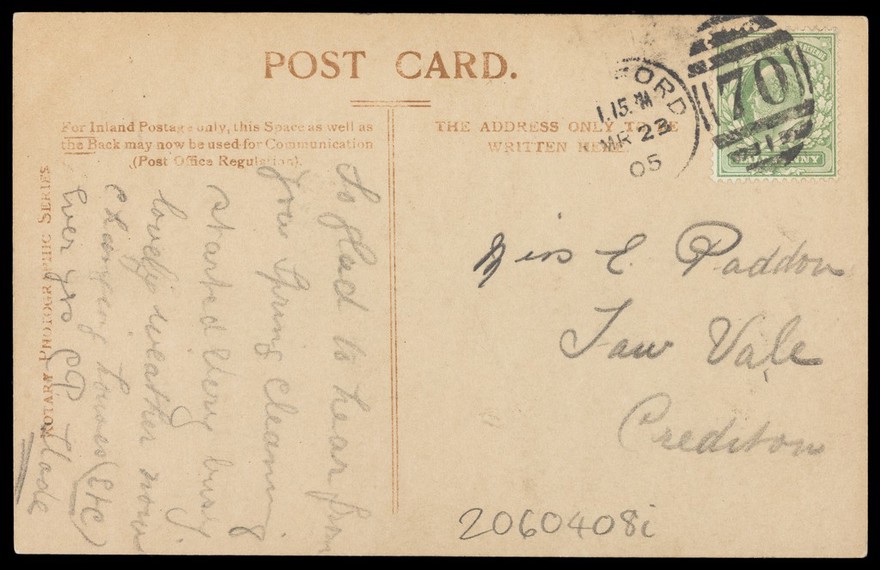 POST CARD.
For Inland Postage only, this Space as well as
the Back may now be used for Communication
(Post Office Regulation).
THE ADDRESS ONLY TO BE
WRITTEN HERE.
ROTARY PHOTOGRAPHIC SERIES
So glad to hear from
Spring cleaning
started Very busy.
lovely weather now
changing houses (Etc)
Ever yrs
Miss E. Paddon
Taw Vale
Crediton
2060408i
FORD
1.15. PM
MR 23
05
70
HALFPENNY